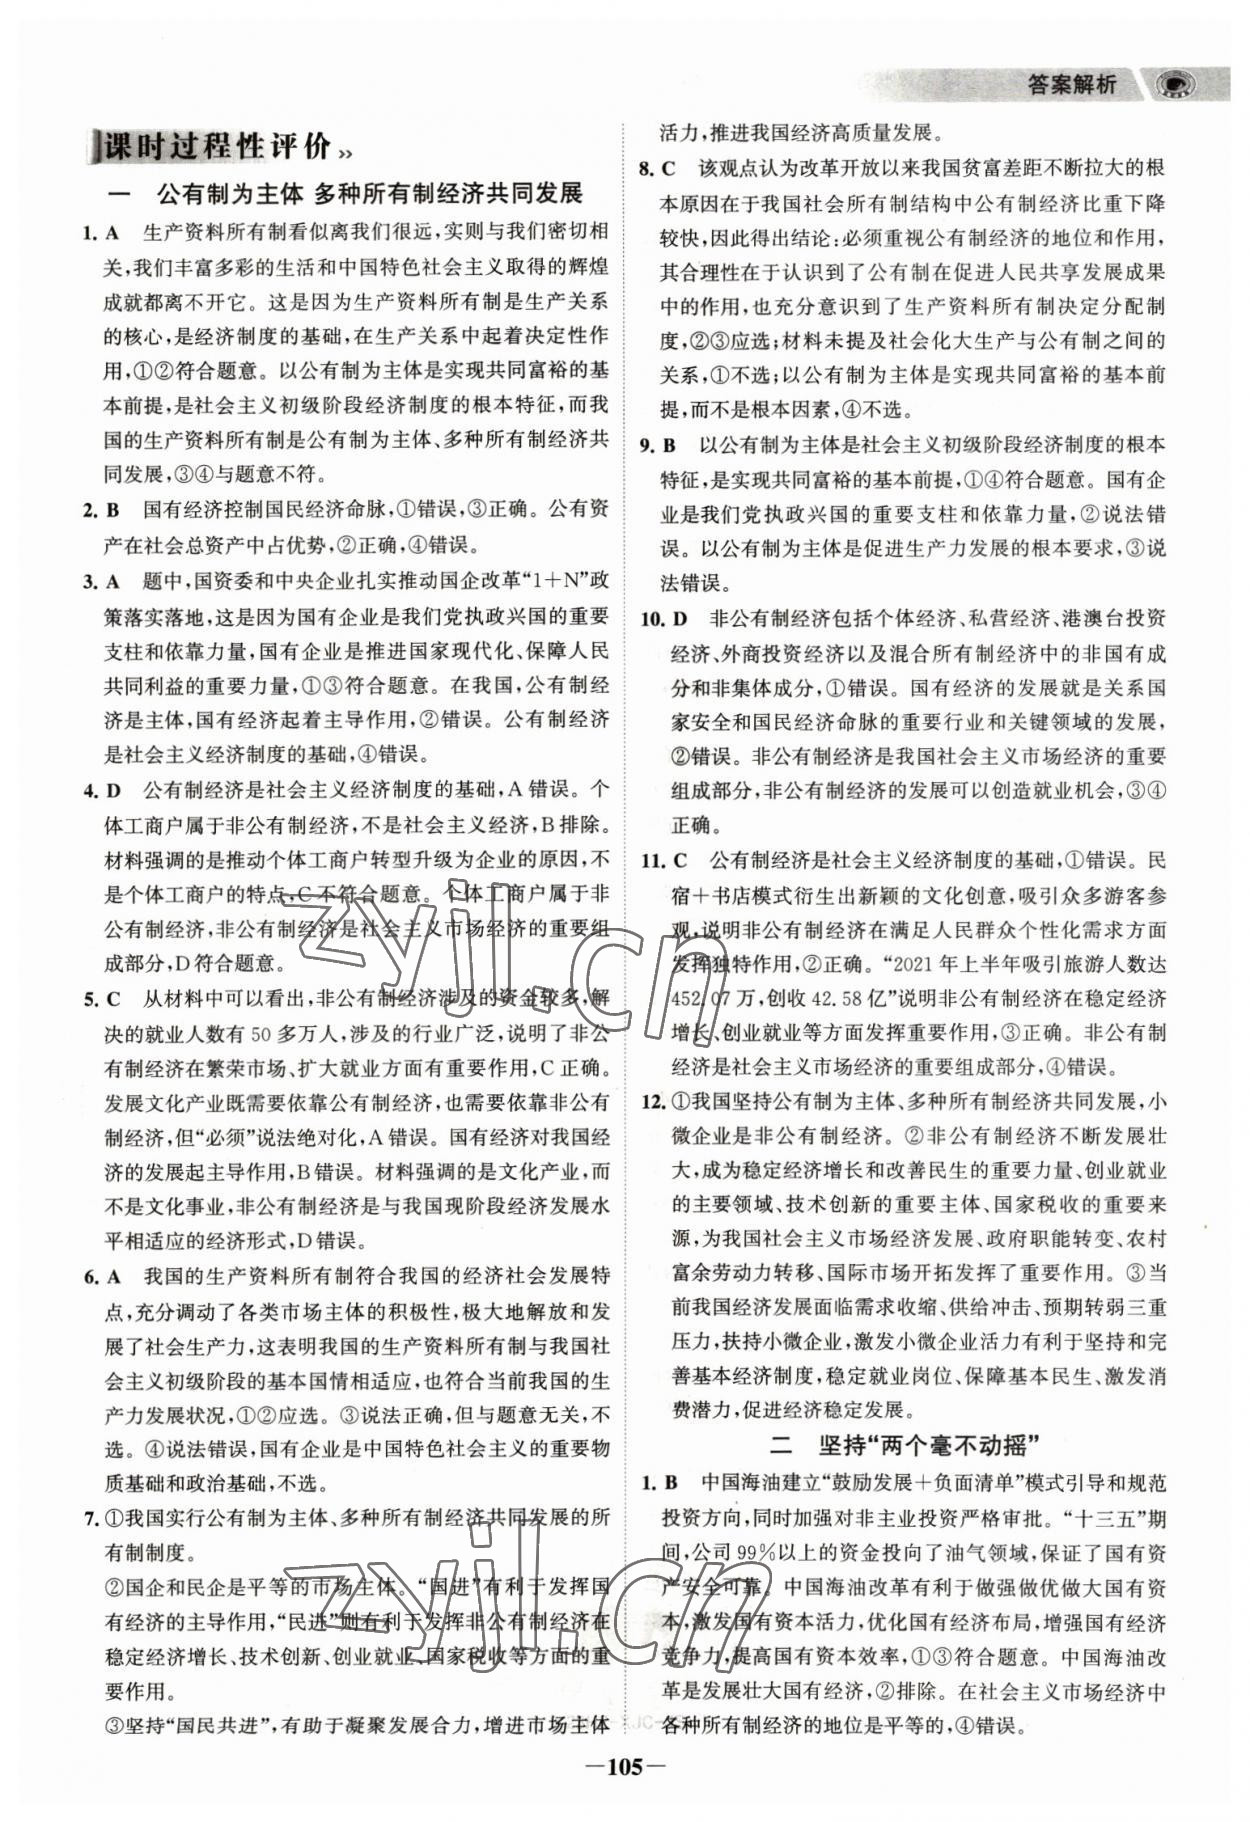 答案解析
课时过程性评价
一 公有制为主体 多种所有制经济共同发展
1. A 生产资料所有制看似离我们很远，实则与我们密切相
关，我们丰富多彩的生活和中国特色社会主义取得的辉煌
成就都离不开它。这是因为生产资料所有制是生产关系
的核心，是经济制度的基础，在生产关系中起着决定性作
用，①②符合题意。以公有制为主体是实现共同富裕的基
本前提，是社会主义初级阶段经济制度的根本特征，而我
国的生产资料所有制是公有制为主体、多种所有制经济共
同发展，③④与题意不符。
2. B 国有经济控制国民经济命脉，①错误，③正确。公有资
产在社会总资产中占优势，②正确，④错误。
3. A 题中，国资委和中央企业扎实推动国企改革“1＋N”政
策落实落地，这是因为国有企业是我们党执政兴国的重要
支柱和依靠力量，国有企业是推进国家现代化、保障人民
共同利益的重要力量，①③符合题意。在我国，公有制经
济是主体，国有经济起着主导作用，②错误。公有制经济
是社会主义经济制度的基础，④错误。
4. D 公有制经济是社会主义经济制度的基础，A错误。个
体工商户属于非公有制经济，不是社会主义经济，B排除。
材料强调的是推动个体工商户转型升级为企业的原因，不
是个体工商户的特点，C不符合题意。个体工商户属于非
公有制经济，非公有制经济是社会主义市场经济的重要组
成部分，D符合题意。
5. C 从材料中可以看出，非公有制经济涉及的资金较多，解
决的就业人数有50多万人，涉及的行业广泛，说明了非公
有制经济在繁荣市场、扩大就业方面有重要作用，C正确。
发展文化产业既需要依靠公有制经济，也需要依靠非公有
制经济，但“必须”说法绝对化，A错误。国有经济对我国经
济的发展起主导作用，B错误。材料强调的是文化产业，而
不是文化事业，非公有制经济是与我国现阶段经济发展水
平相适应的经济形式，D错误。
6. A 我国的生产资料所有制符合我国的经济社会发展特
点，充分调动了各类市场主体的积极性，极大地解放和发
展了社会生产力，这表明我国的生产资料所有制与我国社
会主义初级阶段的基本国情相适应，也符合当前我国的生
产力发展状况，①②应选。③说法正确，但与题意无关，不
选。④说法错误，国有企业是中国特色社会主义的重要物
质基础和政治基础，不选。
7. ①我国实行公有制为主体、多种所有制经济共同发展的所
有制制度。
②国企和民企是平等的市场主体。“国进”有利于发挥国
有经济的主导作用，“民进”则有利于发挥非公有制经济在
稳定经济增长、技术创新、创业就业、国家税收等方面的重
要作用。
③坚持“国民共进”，有助于凝聚发展合力，增进市场主体
活力，推进我国经济高质量发展。
8. C 该观点认为改革开放以来我国贫富差距不断拉大的根
本原因在于我国社会所有制结构中公有制经济比重下降
较快，因此得出结论：必须重视公有制经济的地位和作用，
其合理性在于认识到了公有制在促进人民共享发展成果
中的作用，也充分意识到了生产资料所有制决定分配制
度，②③应选；材料未提及社会化大生产与公有制之间的
关系，①不选；以公有制为主体是实现共同富裕的基本前
提，而不是根本因素，④不选。
9. B 以公有制为主体是社会主义初级阶段经济制度的根本
特征，是实现共同富裕的基本前提，①④符合题意。国有企
业是我们党执政兴国的重要支柱和依靠力量，②说法错
误。以公有制为主体是促进生产力发展的根本要求，③说
法错误。
10. D 非公有制经济包括个体经济、私营经济、港澳台投资
经济、外商投资经济以及混合所有制经济中的非国有成
分和非集体成分，①错误。国有经济的发展就是关系国
家安全和国民经济命脉的重要行业和关键领域的发展，
②错误。非公有制经济是我国社会主义市场经济的重要
组成部分，非公有制经济的发展可以创造就业机会，③④
正确。
11. C 公有制经济是社会主义经济制度的基础，①错误。民
宿＋书店模式衍生出新颖的文化创意，吸引众多游客参
观，说明非公有制经济在满足人民群众个性化需求方面
发挥独特作用，②正确。“2021年上半年吸引旅游人数达
452.07万，创收42.58亿”说明非公有制经济在稳定经济
增长、创业就业等方面发挥重要作用，③正确。非公有制
经济是社会主义市场经济的重要组成部分，④错误。
12. ①我国坚持公有制为主体、多种所有制经济共同发展，小
微企业是非公有制经济。②非公有制经济不断发展壮
大，成为稳定经济增长和改善民生的重要力量、创业就业
的主要领域、技术创新的重要主体、国家税收的重要来
源，为我国社会主义市场经济发展、政府职能转变、农村
富余劳动力转移、国际市场开拓发挥了重要作用。③当
前我国经济发展面临需求收缩、供给冲击、预期转弱三重
压力，扶持小微企业，激发小微企业活力有利于坚持和完
善基本经济制度，稳定就业岗位、保障基本民生、激发消
费潜力，促进经济稳定发展。
二 坚持“两个毫不动摇”
1. B 中国海油建立“鼓励发展＋负面清单”模式引导和规范
投资方向，同时加强对非主业投资严格审批。“十三五”期
间，公司99％以上的资金投向了油气领域，保证了国有资
产安全可靠。中国海油改革有利于做强做优做大国有资
本，激发国有资本活力，优化国有经济布局，增强国有经济
竞争力，提高国有资本效率，①③符合题意。中国海油改
革是发展壮大国有经济，②排除。在社会主义市场经济中
各种所有制经济的地位是平等的，④错误。
—105—
zyjl.cn
zyjl.cn